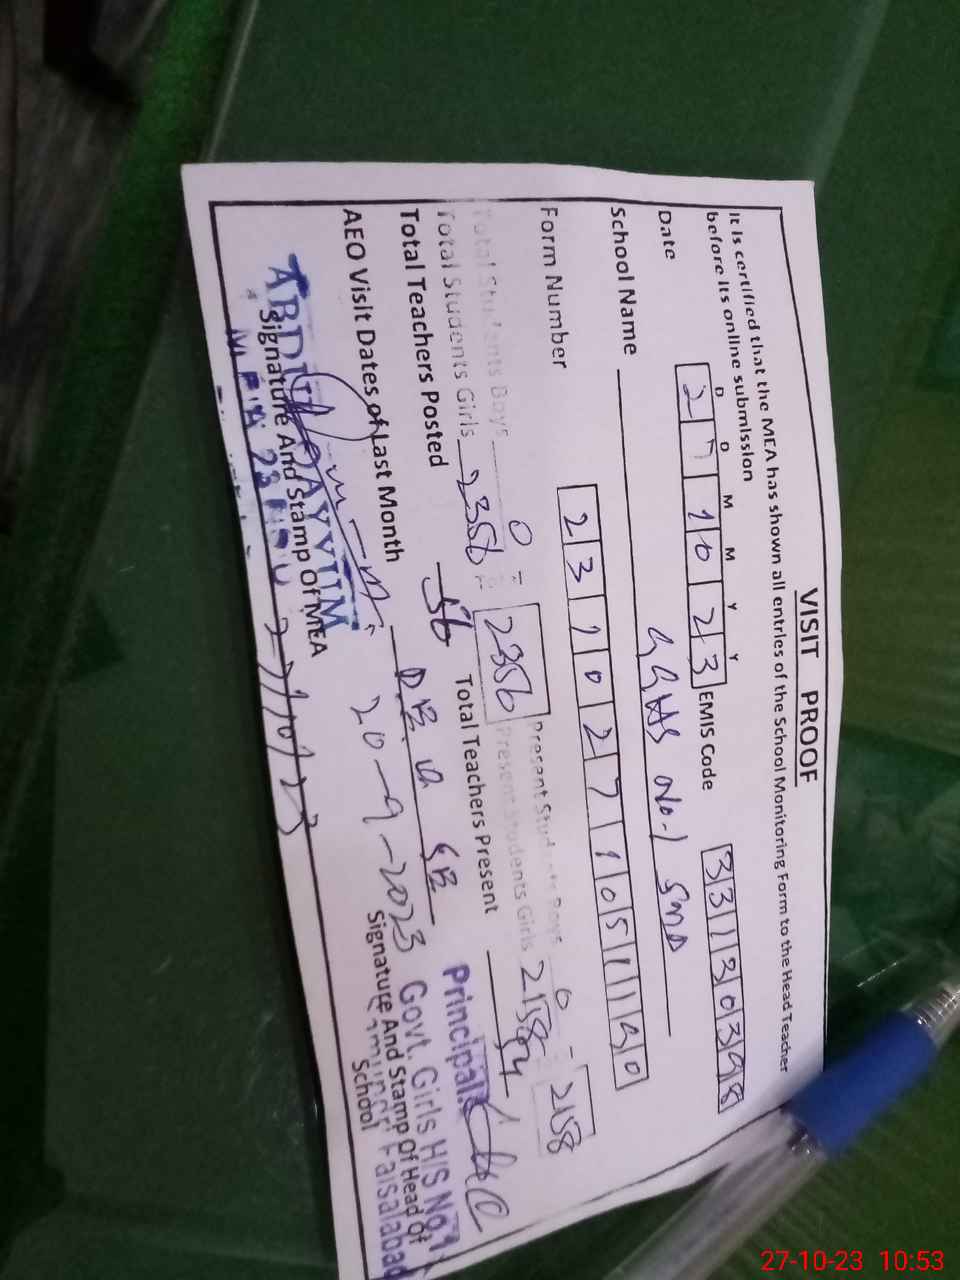 VISIT PROOF
It is certified that the MEA has shown all entries of the School Monitoring Form to the Head Teacher
before its online submission
D D M M Y Y
Date 2 7 1 0 2 3 EMIS Code 3 3 1 3 0 3 9 8
School Name GGHS No-1 SMD
Form Number 2 3 1 0 2 7 1 0 5 1 1 4 0
Total Students Boys 0 = Present Students Boys 0 =
Total Students Girls 2356 2356 Present Students Girls 2158 2158
Total Teachers Posted 56 Total Teachers Present 54
AEO Visit Dates of Last Month
20-9-2023
Principal
Govt. Girls H/S No.1
Samundri Faisalabad
ABDUL QAYYUM
Signature And Stamp Of MEA
27/10/23
Signature And Stamp Of Head of
School
27-10-23 10:53